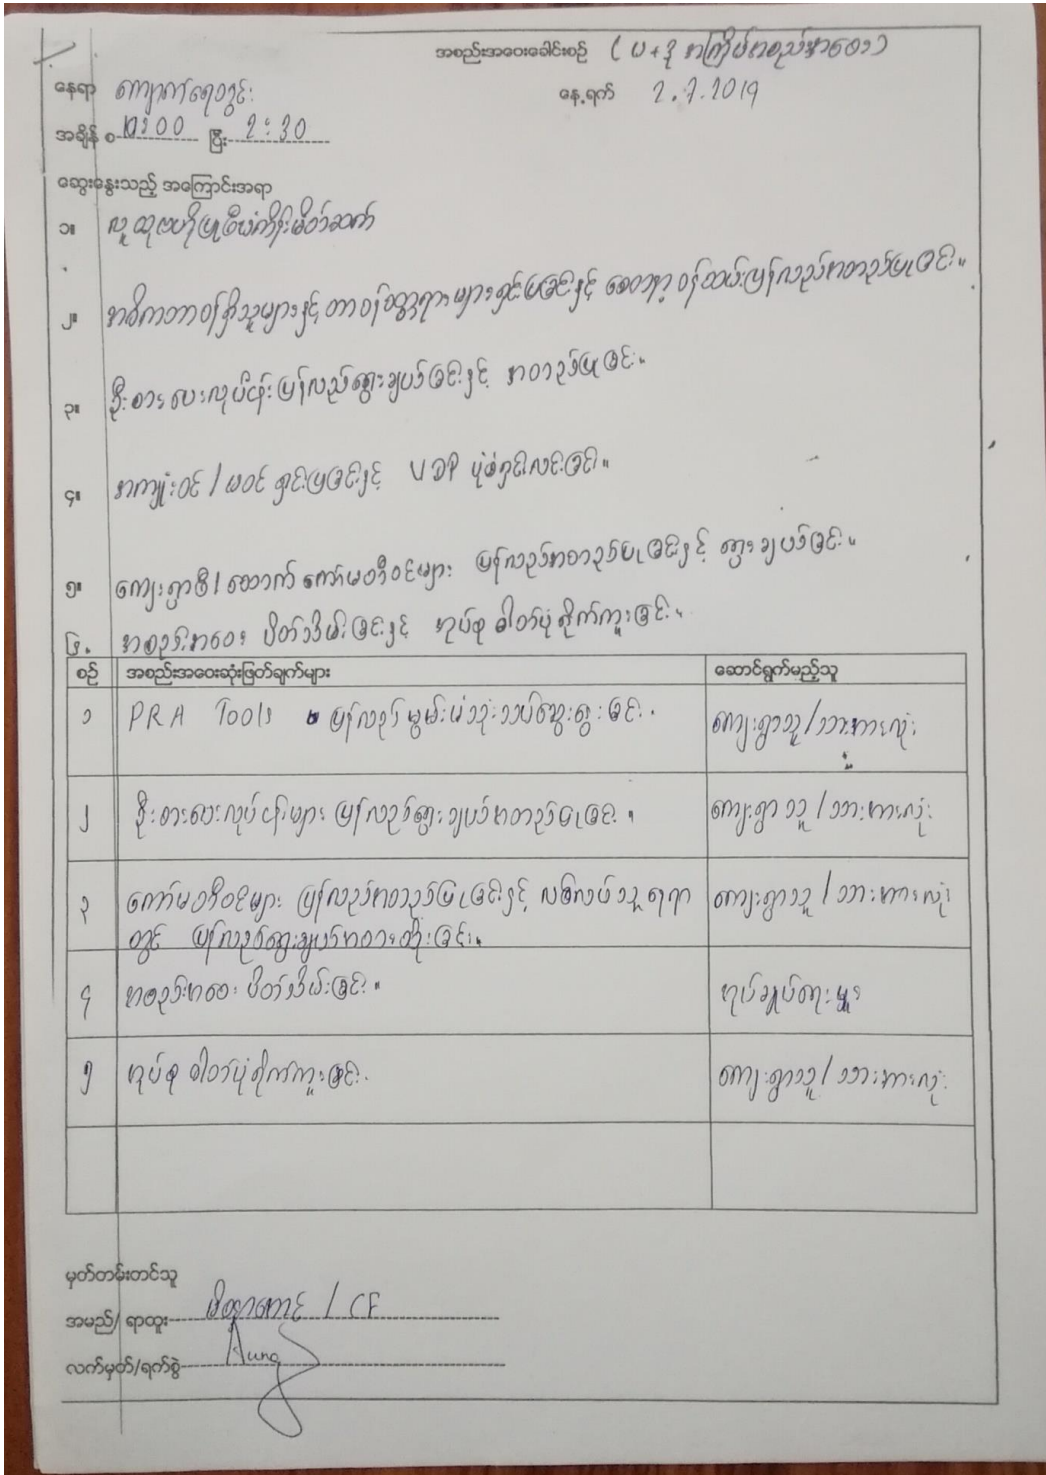 အစည်းအဝေးခေါင်းစဉ် ( ပ + ဒု အကြိမ်အစည်းအဝေး )
နေရာ ကျောက်ရေတွင်း နေ့ရက် 2.7.2019
အချိန် စ 12:00 ပြီး 2:30
ဆွေးနွေးသည့် အကြောင်းအရာ
၁။ လူထုဗဟိုပြုစီမံကိန်းမိတ်ဆက်
၂။ အဓိကတာဝန်ရှိသူများနှင့် တာဝန်ဝတ္တရားများရှင်းပြခြင်းနှင့် စေတနာ့ဝန်ထမ်းပြန်လည်အတည်ပြုခြင်း။
၃။ ဦးစားပေးလုပ်ငန်းပြန်လည်ရွေးချယ်ခြင်းနှင့် အတည်ပြုခြင်း။
၄။ အကျုံးဝင် / မဝင် ရှင်းပြခြင်းနှင့် VDP ပုံစံရှင်းလင်းခြင်း။
၅။ ကျေးရွာစီ/ထောက် ကော်မတီဝင်များ ပြန်လည်အတည်ပြုခြင်းနှင့် ရွေးချယ်ခြင်း။
၆. အစည်းအဝေး ပိတ်သိမ်းခြင်းနှင့် အုပ်စု ဓါတ်ပုံရိုက်ကူးခြင်း။
စဉ် အစည်းအဝေးဆုံးဖြတ်ချက်များ ဆောင်ရွက်မည့်သူ
၁ PRA Tools ပြန်လည် မွမ်းမံသုံးသပ်ဆွေးနွေးခြင်း. ကျေးရွာသူ/သားအားလုံး
၂ ဦးစားပေးလုပ်ငန်းများ ပြန်လည်ရွေးချယ်အတည်ပြုခြင်း။ ကျေးရွာသူ / သားအားလုံး
၃ ကော်မတီဝင်များ ပြန်လည်အတည်ပြုခြင်းနှင့် လစ်လပ်သူနေရာ ကျေးရွာသူ / သားအားလုံး
တွင် ပြန်လည်ရွေးချယ်အစားထိုးခြင်း။
၄ အစည်းအဝေး ပိတ်သိမ်းခြင်း။ အုပ်ချုပ်ရေးမှူး
၅ အုပ်စု ဓါတ်ပုံရိုက်ကူးခြင်း. ကျေးရွာသူ / သားအားလုံး
မှတ်တမ်းတင်သူ
အမည်/ ရာထူး / CF
လက်မှတ်/ရက်စွဲ Aung